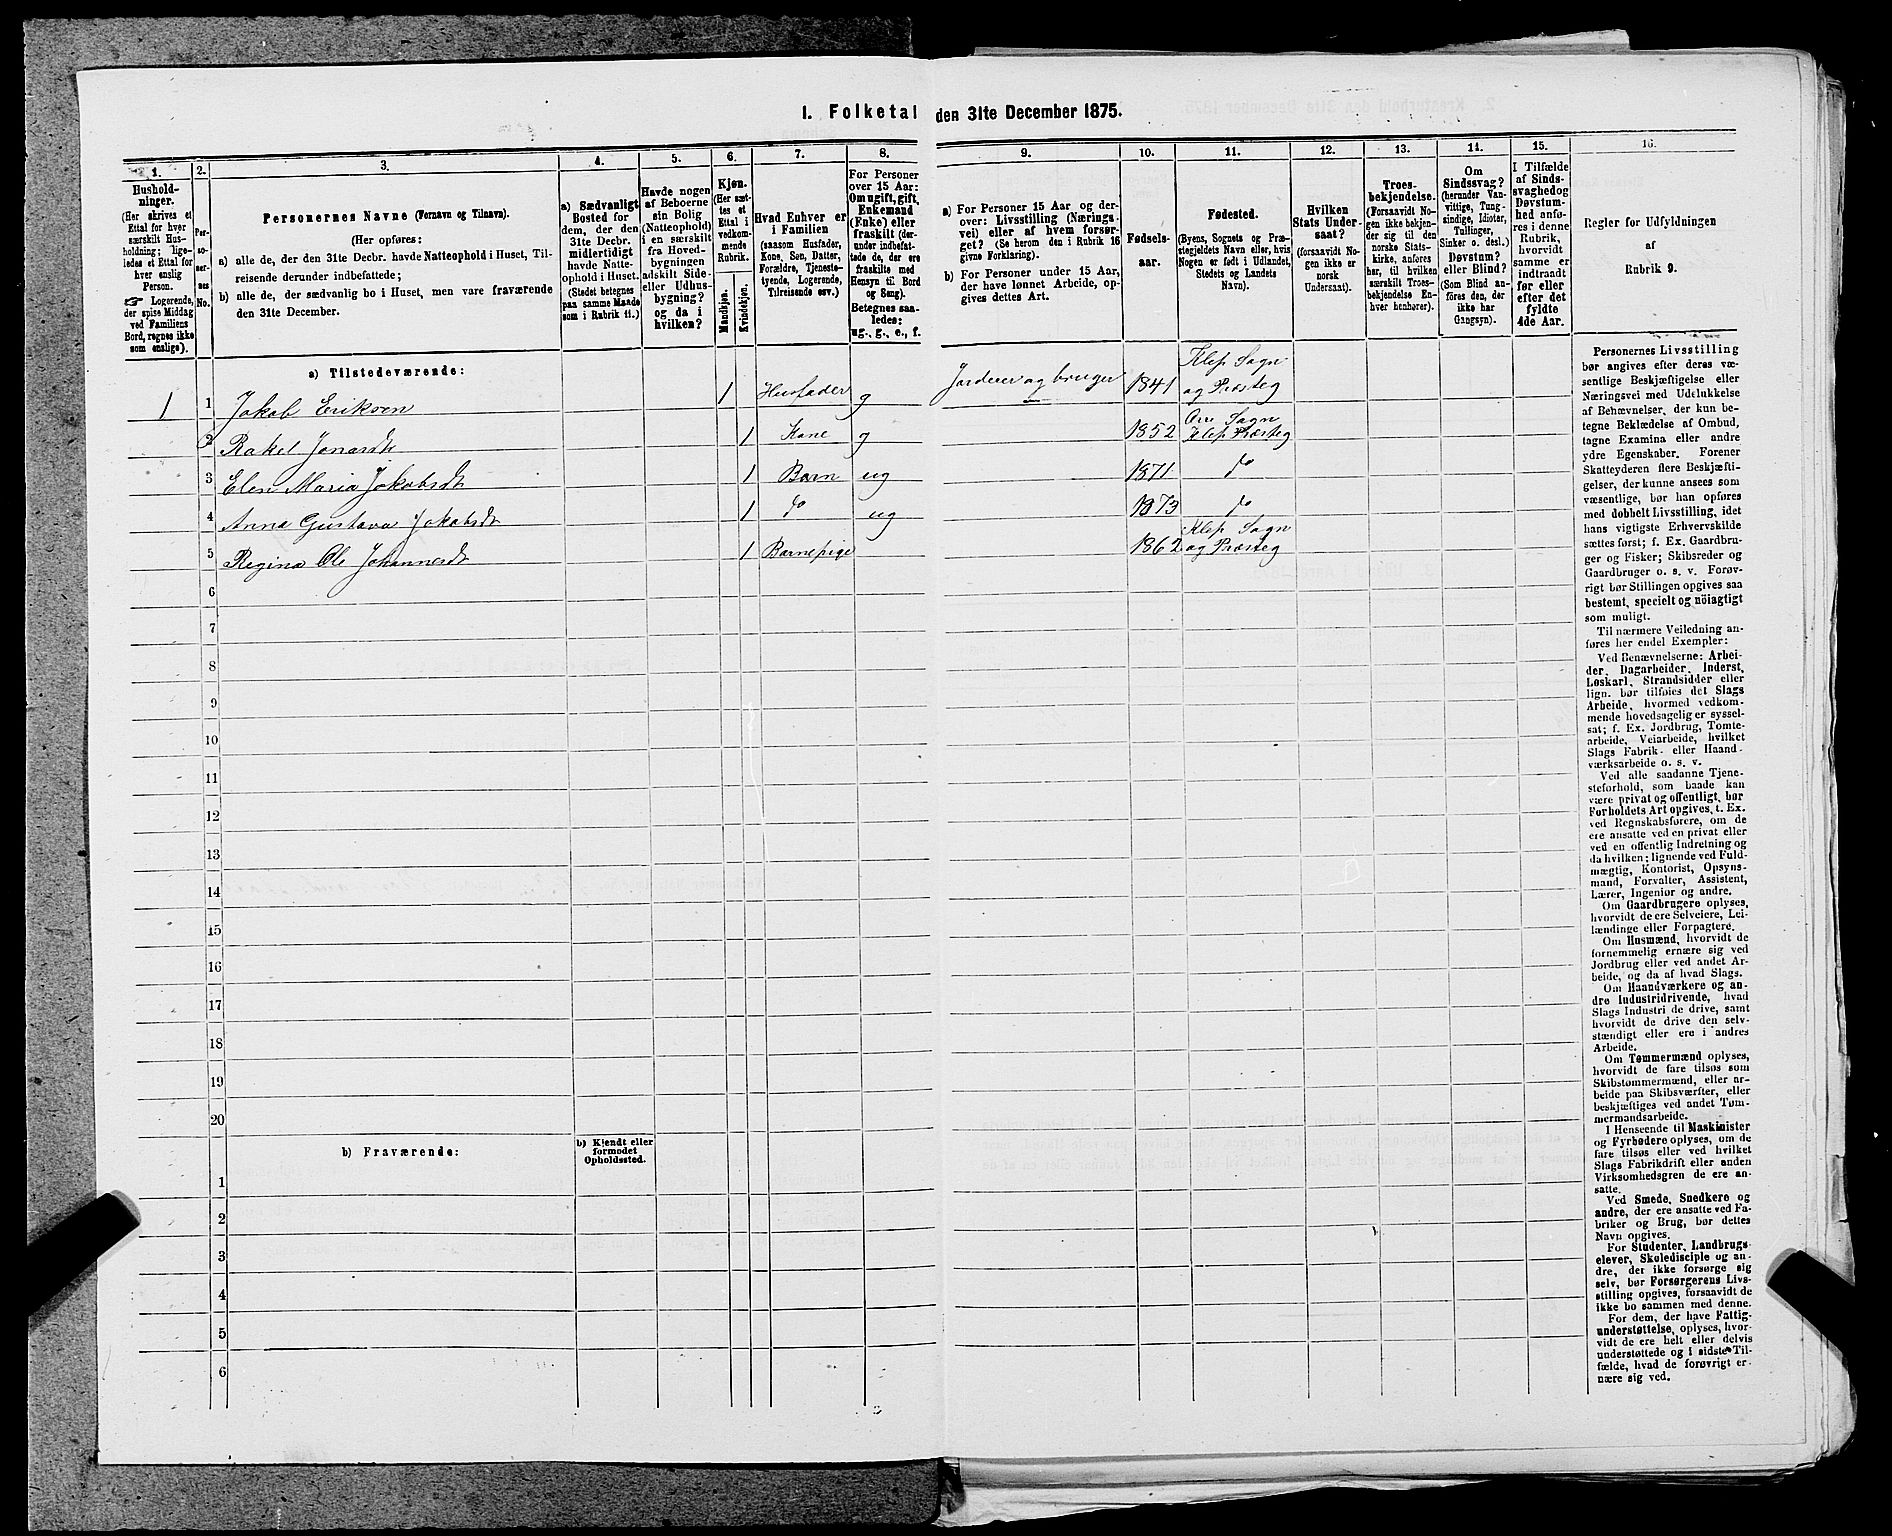 1. Folketal den 31te December 1875.
1.
2.
3.
4.
5.
6.
7.
8.
9.
10.
11.
12.
13.
14.
15.
16.
Hushold-
ninger.
(Her skrives et
Ettal for hver
særskilt Hus-
holdning; lige-
ledes et Ettal for
hver enslig
Person.
☞ Logerende,
der spise Middag
ved Familiens
Bord, regnes ikke
som enslige).
Per-
so-
ner-
nes
No.
Personernes Navne (Fornavn og Tilnavn).
(Her opføres:
a) alle de, der den 31te Decbr. havde Natteophold i Huset, Til-
reisende derunder indbefattede;
b) alle de, der sædvanlig bo i Huset, men vare fraværende
den 31te December.
a) Sædvanligt
Bosted for
dem, der den
31te Decbr.
midlertidigt
havde Natte-
ophold i Huset.
(Stedet betegnes
paa samme Maade
som i Rubrik 11.)
Havde nogen
af Beboerne
sin Bolig
(Natteophold)
i en særskilt
fra Hoved-
bygningen
adskilt Side-
eller Udhus-
bygning?
og da i
hvilken?
Kjøn.
(Her sæt-
tes et
Ettal i
vedkom-
mende
Rubrik.
Mandkjøn.
Kvindekjøn.
Hvad Enhver er
i Familien
(saasom Husfader,
Kone, Søn, Datter,
Forældre, Tjeneste-
tyende, Logerende,
Tilreisende osv.)
For Personer
over 15 Aar:
Om ugift, gift,
Enkemand
(Enke) eller
fraskilt (der-
under indbefat-
tede de, der ere
fraskilte med
Hensyn til Bord
og Seng).
Betegnes saa-
ledes:
ug., g., e., f.
a) For Personer 15 Aar og der-
over: Livsstilling (Nærings-
vei) eller af hvem forsør-
get? (Se herom den i Rubrik 16
givne Forklaring).
b) For Personer under 15 Aar,
der have lønnet Arbeide, op-
gives dettes Art.
Fødsels-
aar.
Fødested.
(Byens, Sognets og Præ-
stegjeldets Navn eller, hvis
Nogen er født i Udlandet,
Stedets og Landets
Navn).
Hvilken
Stats Under-
saat?
(forsaavidt No-
gen ikke er
norsk
Undersaat).
Troes-
bekjendelse.
(Forsaavidt No-
gen ikke bekjen-
der sig til den
norske Stats-
kirke, anføres
her, til hvilken
særskilt Troes-
bekjendelse En-
hver henhører).
Om
Sindssvag?
(herunder Van-
vittige, Tung-
sindige, Idioter,
Tullinger,
Sinker o. desl.)
Døvstum?
eller Blind?
(Som Blind an-
føres den, der
ikke har
Gangsyn).
I Tilfælde
af Sinds-
svaghed og
Døvstum-
hed anfø-
res i denne
Rubrik,
hvorvidt
samme er
indtraadt
før eller
efter det
fyldte
4de Aar.
Regler for Udfyldningen
af
Rubrik 9.
a) Tilstedeværende:
1 1 Jakob Eriksen 1 Husfader g Jordeier og bruger 1841 Klep Sogn og Præsteg
2 Rakel Jonasdt 1 Kone g 1852 Orre Sogn Klep Præsteg
3 Elen Maria Jakobsdt 1 Barn ug 1871 do
4 Anna Gustava Jakobsdt 1 do ug 1873 do
5 Regina Ole Johannesdt 1 Barnepige 1862 Klep Sogn og Præsteg
6
7
8
9
10
11
12
13
14
15
16
17
18
19
20
b) Fraværende:
b) Kjendt eller
formodet
Opholdssted.
1
2
3
4
5
6
Personernes Livsstilling
bør angives efter deres væ-
sentlige Beskjæftigelse eller
Næringsvei med Udelukkelse
af Behævnelser, der kun be-
tegne Beklædelse af Ombud,
tagne Examina eller andre
ydre Egenskaber. Forener
Skatteyderen flere Beskjæfti-
gelser, der kunne ansees som
væsentlige, bør han opføres
med dobbelt Livsstilling, idet
hans vigtigste Erhvervskilde
sættes først; f. Ex. Gaardbru-
ger og Fisker; Skibsreder og
Gaardbruger o. s. v. Forøv-
rigt bør Stillingen opgives saa
bestemt, specielt og nöiagtigt
som muligt.
Til nærmere Veiledning an-
føres her endel Exempler:
Ved Benævnelserne: Arbei-
der, Dagarbeider, Inderst,
Løskarl, Strandsidder eller
lign. bør tilføies det Slags
Arbeide, hvormed vedkom-
mende hovedsagelig er syssel-
sat; f. Ex. Jordbrug, Tomte-
arbeide, Veiarbeide, hvilket
Slags Fabrik- eller Haand-
værksarbeide o. s. v.
Ved alle saadanne Tjene-
steforhold, som baade kan
være privat og offentligt, bør
Forholdets Art opgives, t. Ex.
ved Regnskabsførere, om de
ere ansatte ved en privat eller
ved en offentlig Indretning og
da hvilken; lignende ved Fuld-
mægtig, Kontorist, Opsyns-
mand, Forvalter, Assistent,
Lærer, Ingeniør og andre.
Om Gaardbrugere oplyses,
hvorvidt de ere Selveiere, Lei-
lændinge eller Forpagtere.
Om Husmænd, hvorvidt de
fornemmelig ernære sig ved
Jordbrug eller ved andet Ar-
beide, og da af hvad Slags.
Om Haandværkere og an-
dre Industridrivende, hvad
Slags Industri de drive, samt
hvorvidt de drive den selv-
stændigt eller ere i andres
Arbeide.
Om Tømmermænd oplyses,
hvorvidt de fare tilsøs som
Skibstømmermænd, eller ar-
beide paa Skibsværfter, eller
beskjæftiges ved andet Tøm-
mermandsarbeide.
I Henseende til Maskinister
og Fyrbødere oplyses, om de
fare tilsøs eller ved hvilket
Slags Fabrikdrift eller anden
Virksomhedsgren de ere an-
satte.
Ved Smede, Snedkere og
andre, der ere ansatte ved Fa-
briker og Brug, bør dettes
Navn opgives.
For Studenter, Landbrugs-
elever, Skoledisciple og an-
dre, der ikke forsørge sig
selv, bør Forsørgerens Livs-
stilling opgives, forsaavidt de
ikke bo sammen med denne.
For dem, der have Fattig-
understøttelse, oplyses, hvor-
vidt de ere helt eller delvis
understøttede og i sidste Til-
fælde, hvad de forøvrigt er-
nære sig ved.